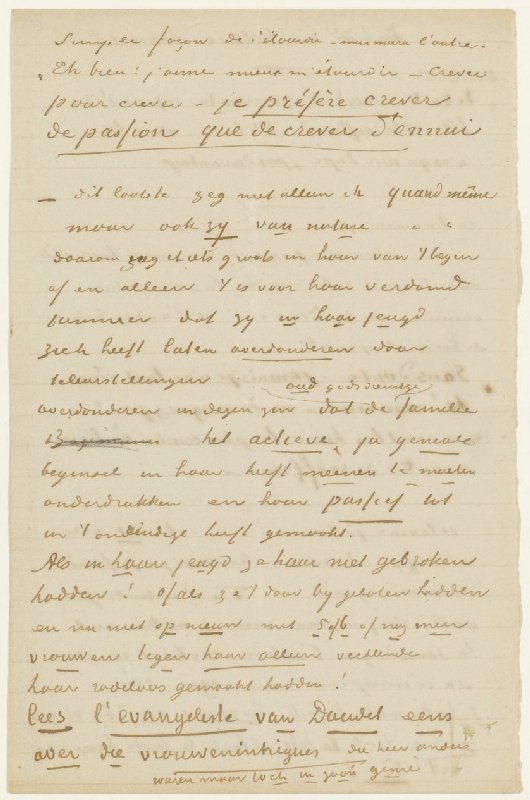 Simple façon de s'étourdir – murmura l'autre.
„Eh bien! j'aime mieux m'étourdir – Crever
pour crever – je préfère crever
de passion que de crever d'ennui
– dit laatste zeg niet alleen ik quand même
maar ook zy van nature " "
daarom zag ik iets groots in haar van 't begin
af en alleen 't is voor haar verdomd
jammer dat zy in haar jeugd
zich heeft laten overdonderen door
teleurstellingen
oud godsdienstige
overdonderen in dezen zin dat de familie
het actieve, ja geniale
beginsel in haar heeft meenen te moeten
onderdrukken en haar passief tot
in 't oneindige heeft gemaakt.
Als in haar jeugd ze haar niet gebroken
hadden! Of als ze 't daar by gelaten hadden
en nu niet op nieuw met 5 of 6 of nog meer
vrouwen tegen haar alleen vechtende
haar radeloos gemaakt hadden!
lees l'evangeliste van Daudet eens
over die vrouwenintrigues die hier anders
waren maar toch in zoo'n genre